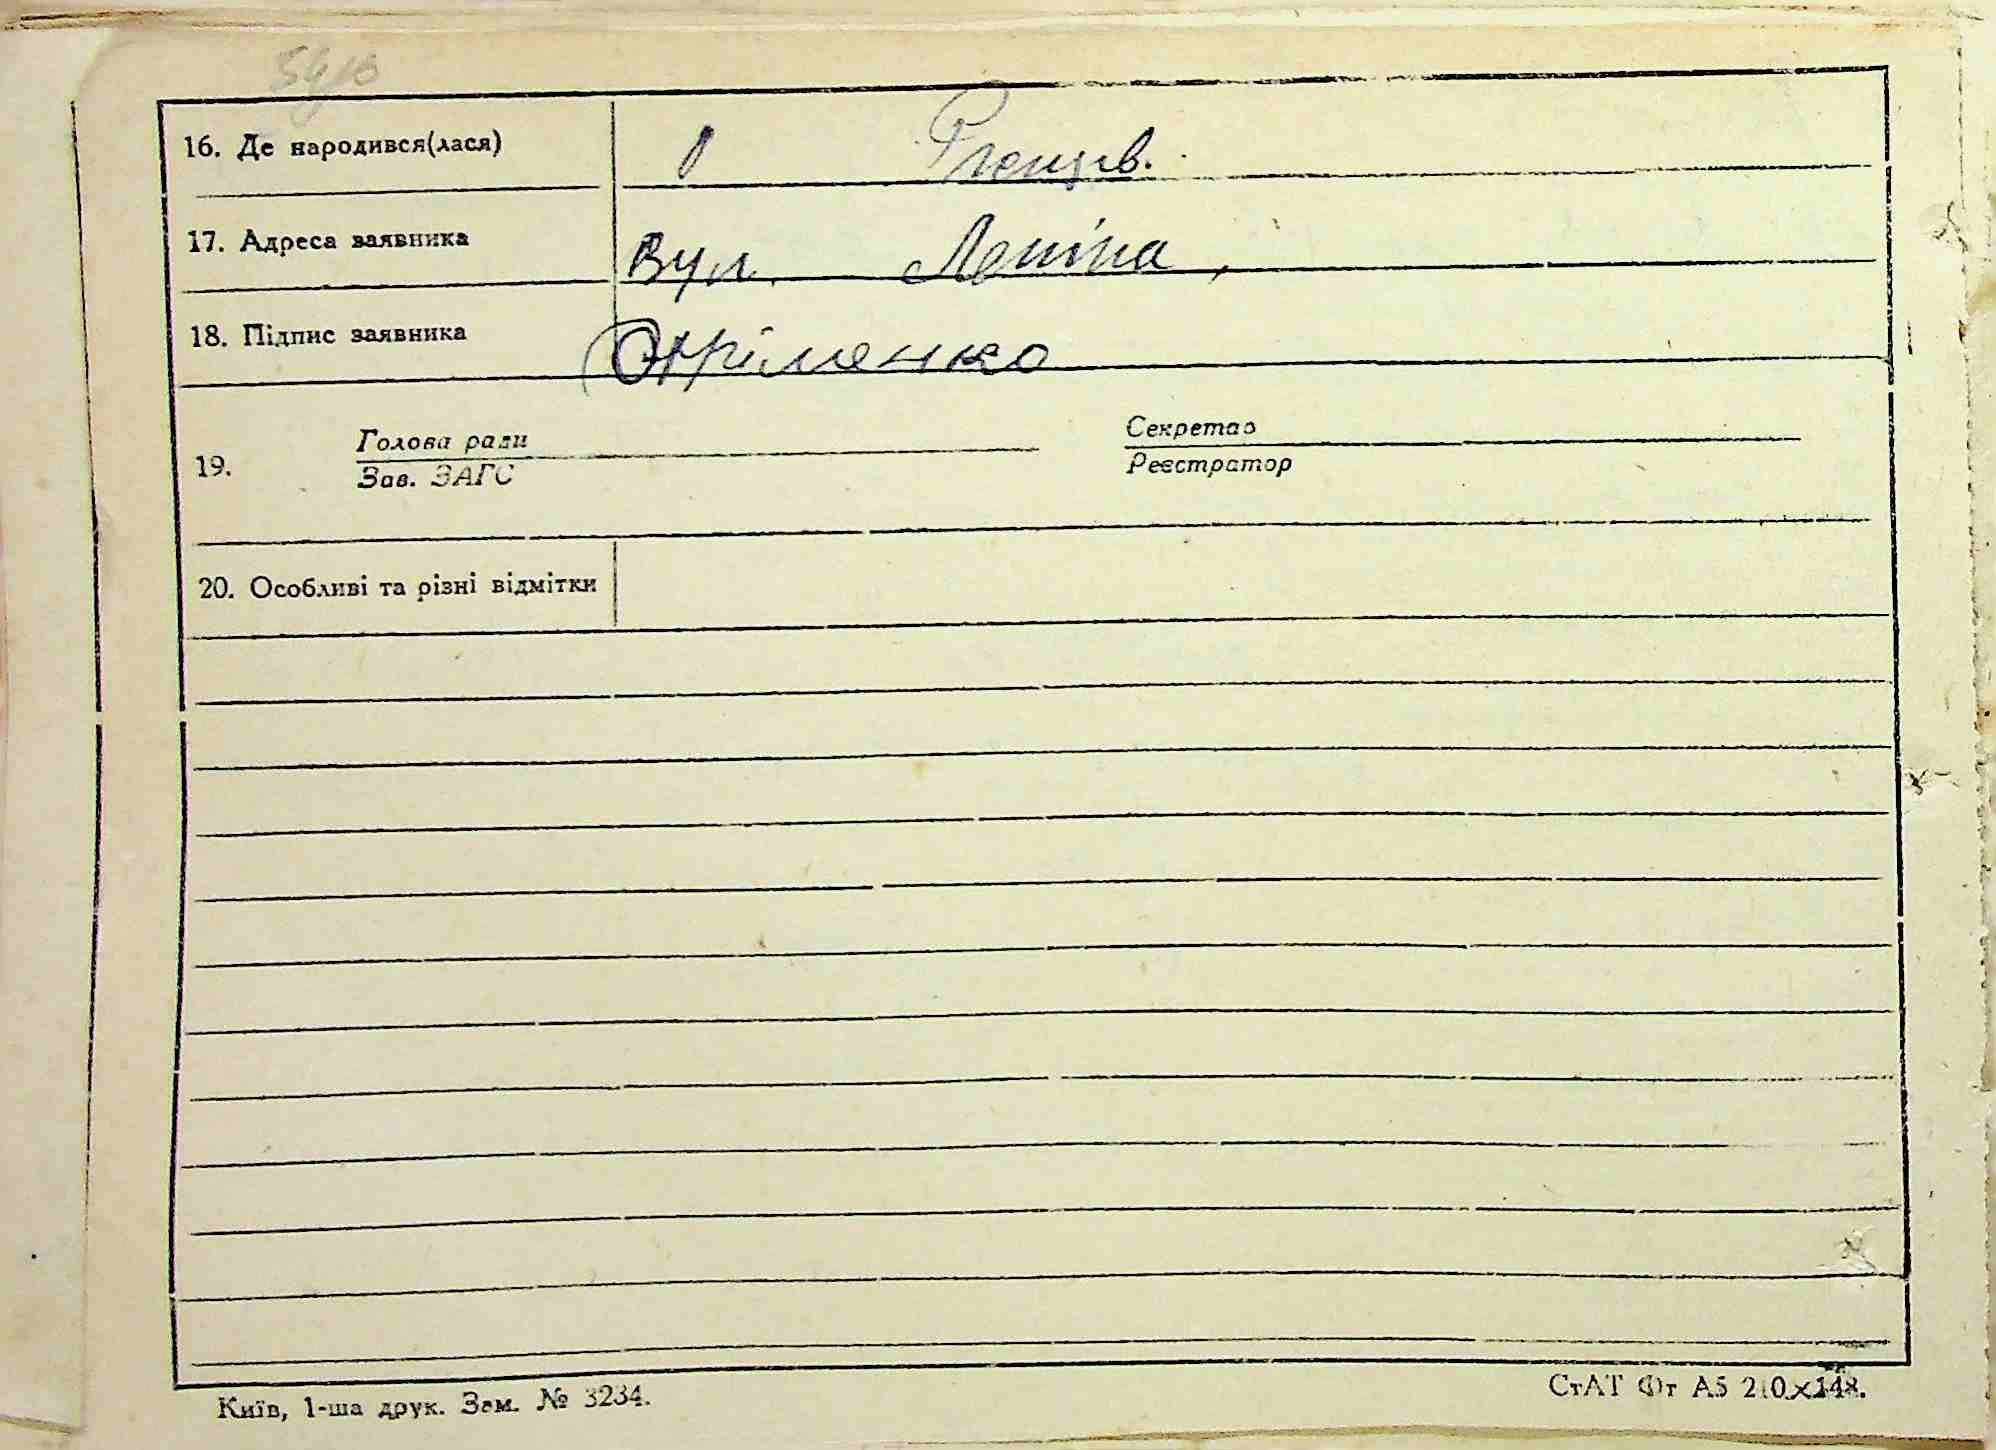 16. Де народився(лася)
17. Адреса заявника Вул. Леніна,
18. Підпис заявника
19. Голова ради Секретар
Зав. ЗАГС Реєстратор
20. Особливі та різні відмітки
Київ, 1-ша друк. Зам. № 3234.
СтАТ Фт А5 210×148.